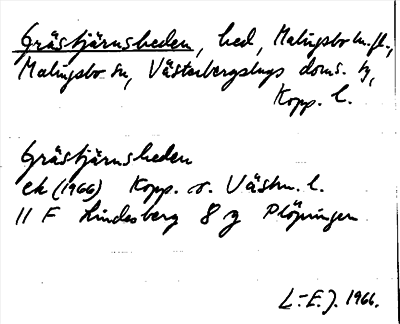 Grästjärnsheden, hed, Malingsbo kn.fl.,
Malingsbo sn, Västerbergslags doms. tg,
Kopp. l.
Grästjärnsheden
ek (1966) Kopp. o. Västm. l.
11 F Lindesberg 8 g Plöjningen
L-E.J. 1966.